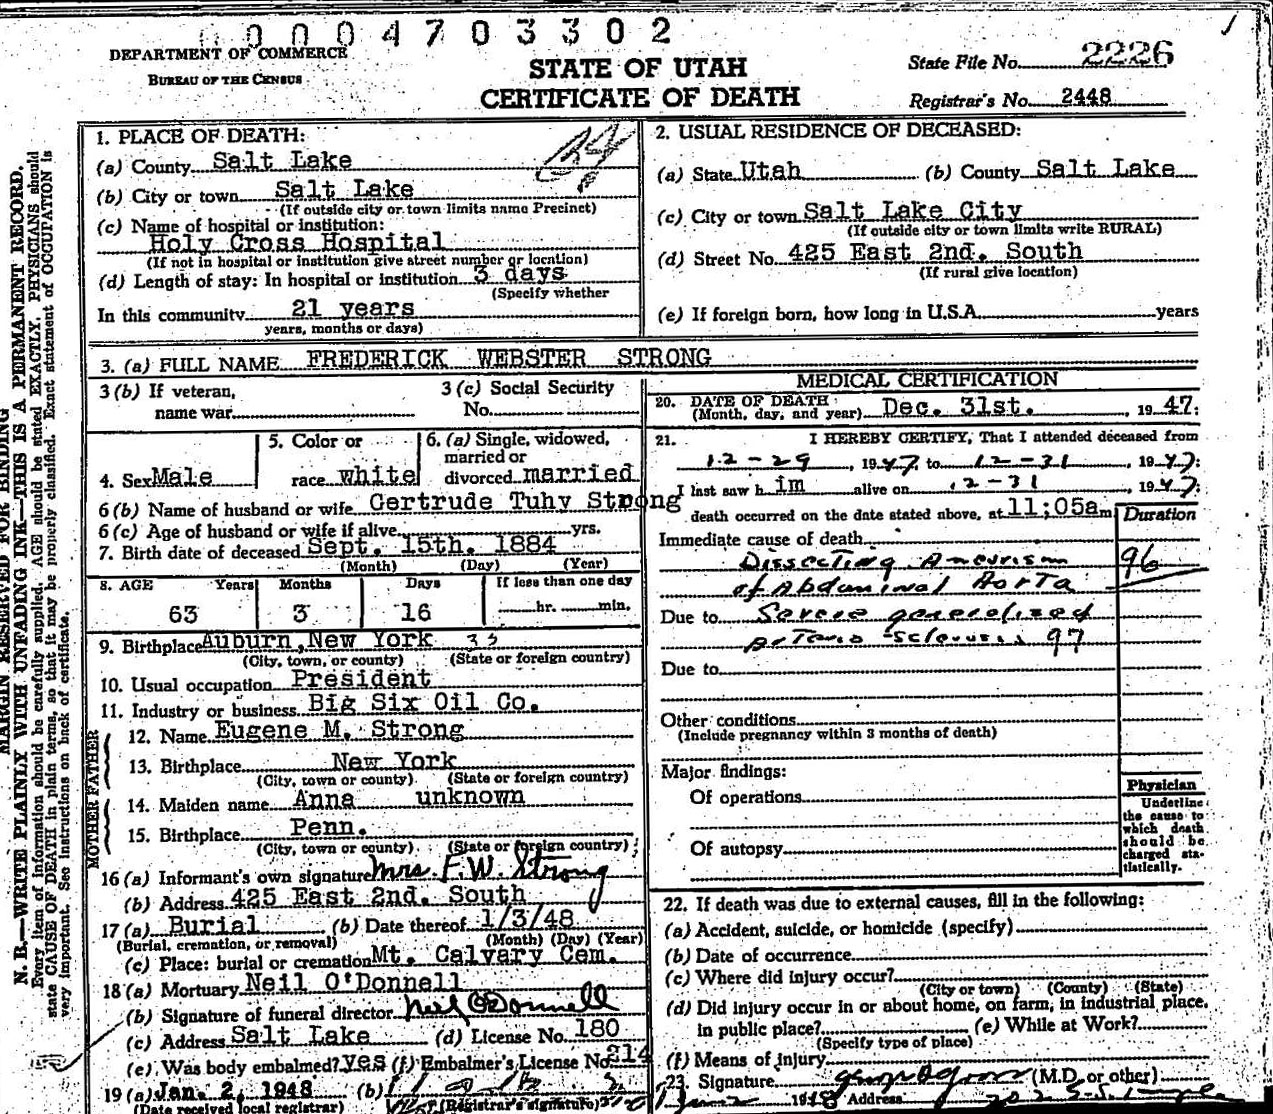 0004703302
DEPARTMENT OF COMMERCE
BUREAU OF THE CENSUS
STATE OF UTAH
CERTIFICATE OF DEATH
State File No. 2226
Registrar's No. 2448
MARGIN RESERVED FOR BINDING
N. B.—WRITE PLAINLY WITH UNFADING INK—THIS IS A PERMANENT RECORD.
Every item of information should be carefully supplied. AGE should be stated EXACTLY. PHYSICIANS should
state CAUSE OF DEATH in plain terms, so that it may be properly classified. Exact statement of OCCUPATION is
very important. See instructions on back of certificate.
1. PLACE OF DEATH:
(a) County Salt Lake
(b) City or town Salt Lake
(If outside city or town limits name Precinct)
(c) Name of hospital or institution:
Holy Cross Hospital
(If not in hospital or institution give street number or location)
(d) Length of stay: In hospital or institution 3 days
(Specify whether
In this community 21 years
years, months or days)
2. USUAL RESIDENCE OF DECEASED:
(a) State Utah (b) County Salt Lake
(c) City or town Salt Lake City
(If outside city or town limits write RURAL)
(d) Street No. 425 East 2nd. South
(If rural give location)
(e) If foreign born, how long in U.S.A. years
3. (a) FULL NAME FREDERICK WEBSTER STRONG
3 (b) If veteran,
name war
3 (c) Social Security
No.
4. Sex Male
5. Color or
race white
6. (a) Single, widowed,
married or
divorced married
6 (b) Name of husband or wife Gertrude Tuhy Strong
6 (c) Age of husband or wife if alive yrs.
7. Birth date of deceased Sept. 15th. 1884
(Month) (Day) (Year)
8. AGE Years Months Days If less than one day
63 3 16 hr. min.
9. Birthplace Auburn, New York 33
(City, town, or county) (State or foreign country)
10. Usual occupation President
11. Industry or business Big Six Oil Co.
FATHER
12. Name Eugene M. Strong
13. Birthplace New York
(City, town or county) (State or foreign country)
MOTHER
14. Maiden name Anna unknown
15. Birthplace Penn.
(City, town or county) (State or foreign country)
16 (a) Informant's own signature Mrs. F. W. Strong
(b) Address 425 East 2nd. South
17 (a) Burial (b) Date thereof 1/3/48
(Burial, cremation, or removal) (Month) (Day) (Year)
(c) Place: burial or cremation Mt. Calvary Cem.
18 (a) Mortuary Neil O'Donnell
(b) Signature of funeral director Neil O'Donnell
(c) Address Salt Lake (d) License No. 180
(e) Was body embalmed? yes (f) Embalmer's License No. 214
19 (a) Jan. 2, 1948 (b)
(Date received local registrar) (Registrar's signature)
MEDICAL CERTIFICATION
20. DATE OF DEATH
(Month, day, and year) Dec. 31st. , 19 47.
21. I HEREBY CERTIFY, That I attended deceased from
12-29 , 1947, to 12-31 , 1947.
I last saw h im alive on 12-31 , 1947.
death occurred on the date stated above, at 11;05am
Duration
Immediate cause of death
Dissecting Aneurism
of Abdominal Aorta
96
Due to Severe generalized
arterio sclerosis 97
Due to
Other conditions
(Include pregnancy within 3 months of death)
Major findings:
Of operations
Of autopsy
Physician
Underline
the cause to
which death
should be
charged sta-
tistically.
22. If death was due to external causes, fill in the following:
(a) Accident, suicide, or homicide (specify)
(b) Date of occurrence
(c) Where did injury occur?
(City or town) (County) (State)
(d) Did injury occur in or about home, on farm, in industrial place,
in public place? (e) While at Work?
(Specify type of place)
(f) Means of injury
23. Signature (M.D. or other)
1948 Address